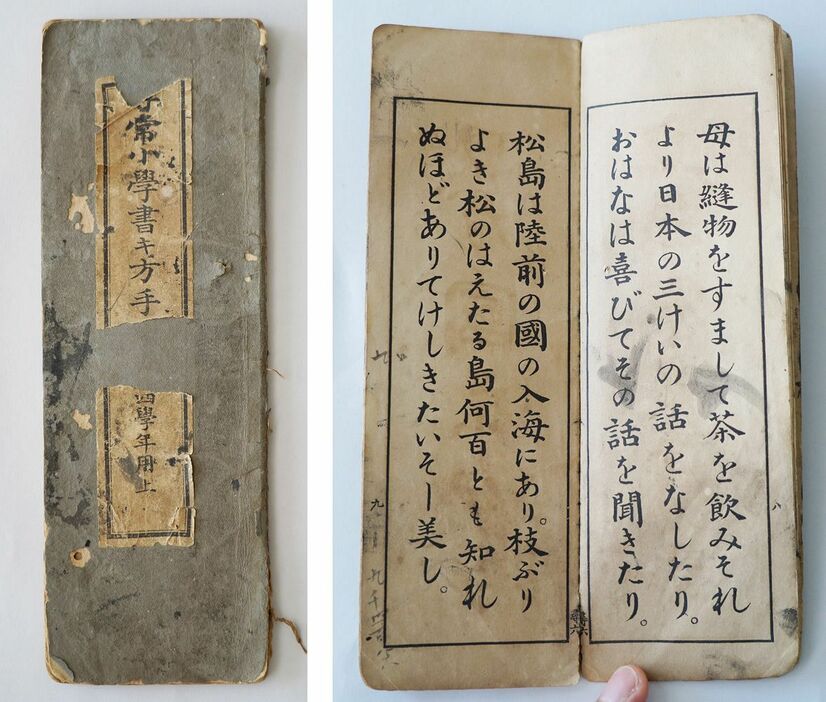 常小學書キ方手
四學年用上
母は縫物をすまして茶を飲みそれ
より日本の三けいの話をなしたり。
おはなは喜びてその話を聞きたり。
八
松島は陸前の國の入海にあり。枝ぶり
よき松のはえたる島何百とも知れ
ぬほどありてけしきたいそー美し。
九